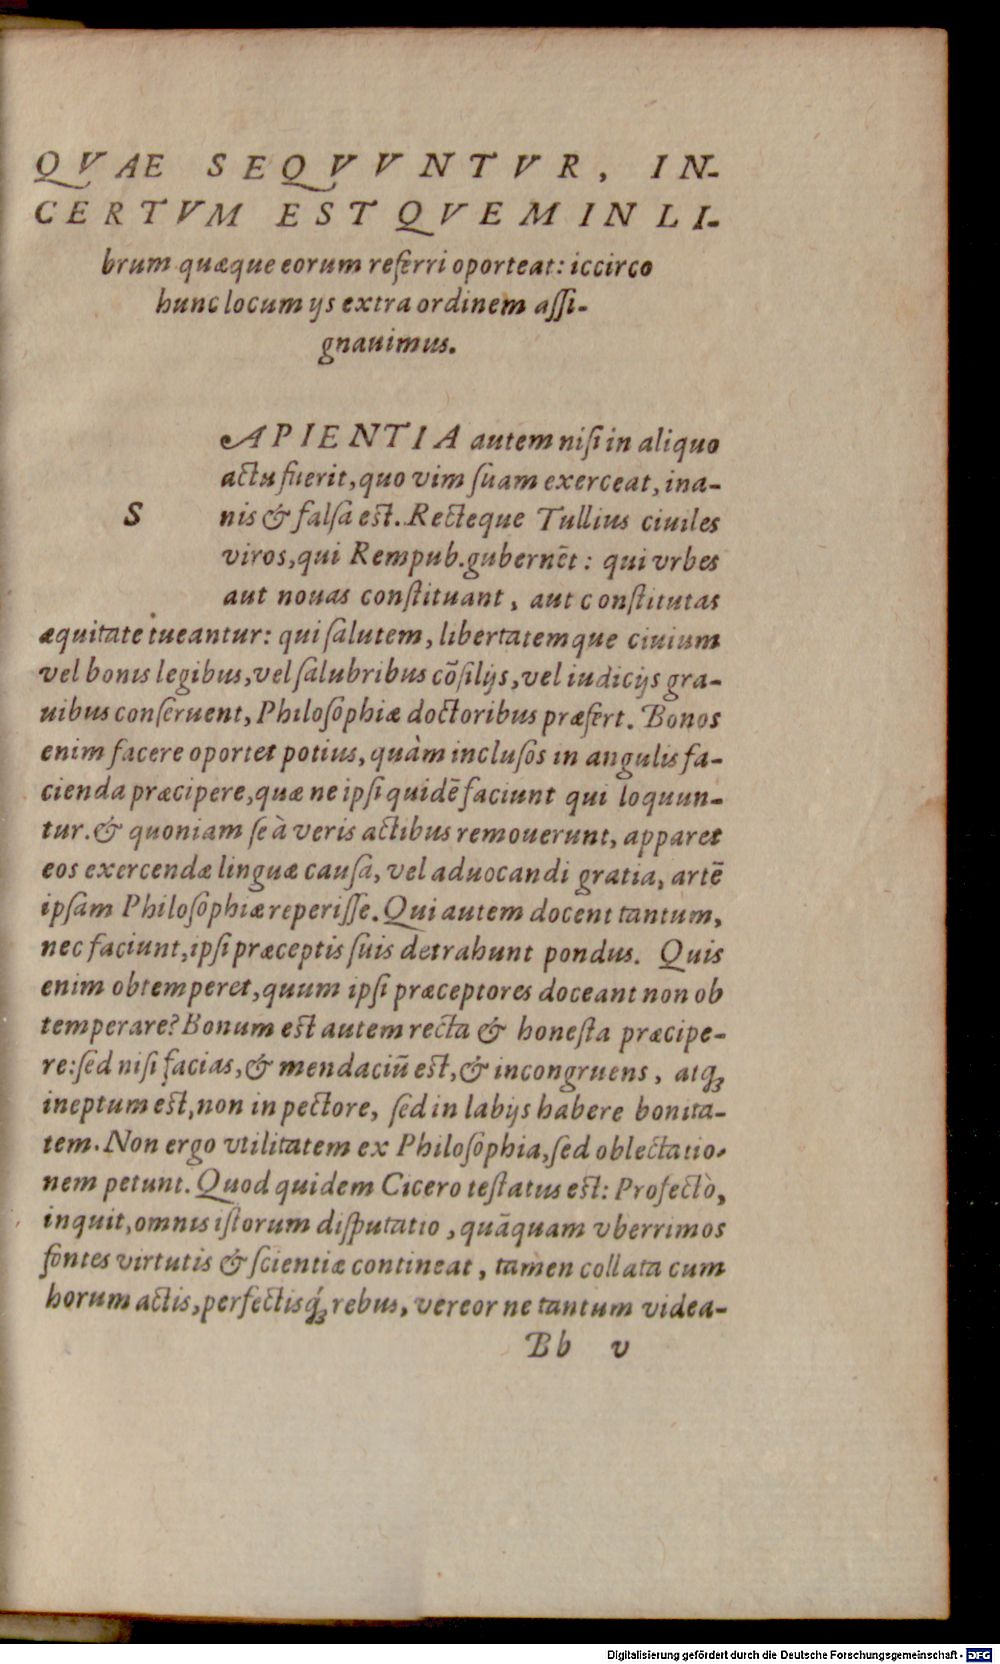 QVAE SEQVVNTVR, IN-
CERTVM EST QVEM IN LI-
brum quæque eorum referri oporteat: iccirco
hunc locum ijs extra ordinem aſſi-
gnauimus.
S
APIENTIA autem niſi in aliquo
actu fuerit, quo vim ſuam exerceat, ina-
nis & falſa est. Recteque Tullius ciuiles
viros, qui Rempub. gubernẽt: qui vrbes
aut nouas conſtituant, aut conſtitutas
æquitate tueantur: qui ſalutem, libertatemque ciuium
vel bonis legibus, vel ſalubribus cõſilijs, vel iudicijs gra-
uibus conſeruent, Philoſophiæ doctoribus præfert. Bonos
enim facere oportet potius, quàm incluſos in angulis fa-
cienda præcipere, quæ ne ipſi quidẽ faciunt qui loquun-
tur. & quoniam ſe à veris actibus remouerunt, apparet
eos exercendæ linguæ cauſa, vel aduocandi gratia, artẽ
ipſam Philoſophiæ reperiſſe. Qui autem docent tantum,
nec faciunt, ipſi præceptis ſuis detrahunt pondus. Quis
enim obtemperet, quum ipſi præceptores doceant non ob
temperare? Bonum est autem recta & honeſta præcipe-
re: ſed niſi facias, & mendaciũ est, & incongruens, atq;
ineptum est, non in pectore, ſed in labijs habere bonita-
tem. Non ergo vtilitatem ex Philoſophia, ſed oblectatio-
nem petunt. Quod quidem Cicero teſtatus est: Profectò,
inquit, omnis iſtorum diſputatio, quãquam vberrimos
fontes virtutis & ſcientiæ contineat, tamen collata cum
horum actis, perfectisq́; rebus, vereor ne tantum videa-
Bb v
Digitalisierung gefördert durch die Deutsche Forschungsgemeinschaft - DFG